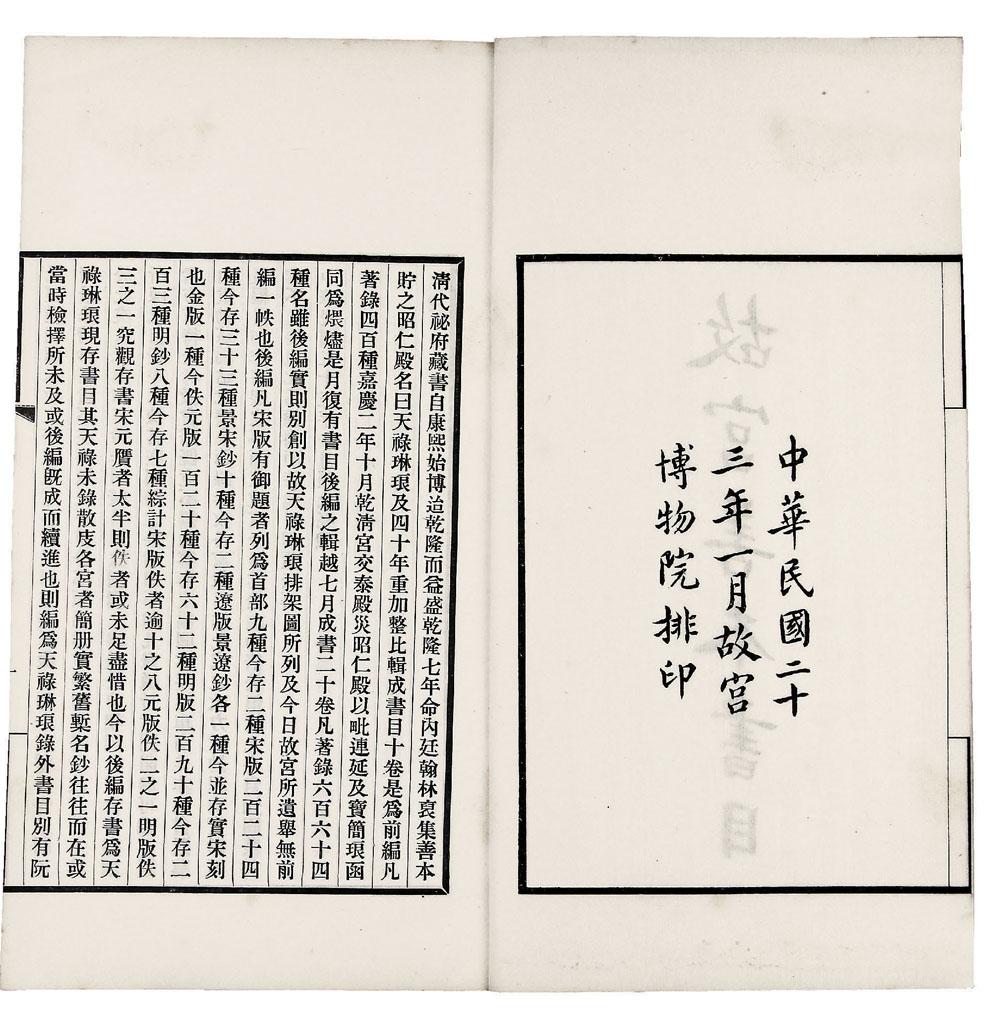 中華民國二十
三年一月故宮
博物院排印
清代祕府藏書自康熙始博迨乾隆而益盛乾隆七年命內廷翰林裒集善本
貯之昭仁殿名曰天祿琳琅及四十年重加整比輯成書目十卷是爲前編凡
著錄四百種嘉慶二年十月乾淸宮交泰殿災昭仁殿以毗連延及寶簡琅函
同爲煨燼是月復有書目後編之輯越七月成書二十卷凡著錄六百六十四
種名雖後編實則別創以故天祿琳琅排架圖所列及今日故宮所遺舉無前
編一帙也後編凡宋版有御題者列爲首部九種今存二種宋版二百二十四
種今存三十三種景宋鈔十種今存二種遼版景遼鈔各一種今並存實宋刻
也金版一種今佚元版一百二十種今存六十二種明版二百九十種今存二
百三種明鈔八種今存七種綜計宋版佚者逾十之八元版佚二之一明版佚
三之一究觀存書宋元贋者太半則佚者或未足盡惜也今以後編存書爲天
祿琳琅現存書目其天祿未錄散庋各宮者簡册實繁舊槧名鈔往往而在或
當時檢擇所未及或後編旣成而續進也則編爲天祿琳琅錄外書目別有阮